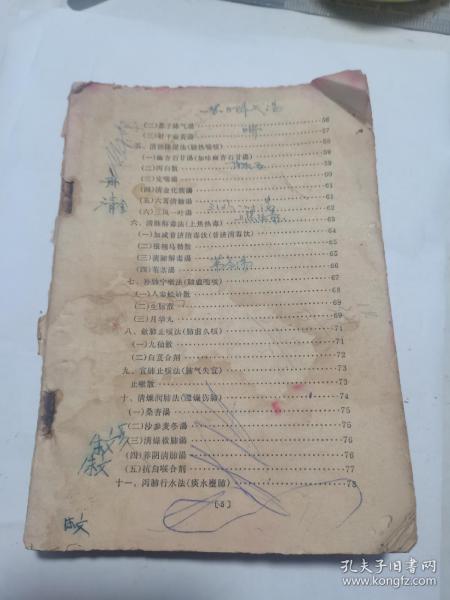 (二)苏子降气汤 56
(三)射干麻黄汤 57
五、清肺除湿法(肺热喘咳) 58
(一)麻杏石甘汤(加味麻杏石甘汤) 58
(二)泻白散 59
(三)定喘汤 60
(四)清金化痰汤 61
(五)六茸清肺汤 61
(六)三风一叶汤 62
六、清肺解毒法(上焦热毒) 63
(一)加减普济消毒饮(普济消毒饮) 64
(二)银翘马勃散 65
(三)清肺解毒汤 66
(四)苇茎汤 66
七、补肺宁嗽法(肺虚喘咳) 67
(一)人参蛤蚧散 68
(二)生脉散 69
(三)月华丸 69
八、敛肺止咳法(肺虚久咳) 71
(一)九仙散 71
(二)白芨合剂 72
九、宣肺止咳法(肺气失宣) 73
止嗽散 73
十、清燥润肺法(温燥伤肺) 74
(一)桑杏汤 75
(二)沙参麦冬汤 75
(三)清燥救肺汤 76
(四)养阴清肺汤 76
(五)抗白喉合剂 77
十一、泻肺行水法(痰水壅肺) 78
(5)
孔夫子旧书网
https://book.kongfz.com